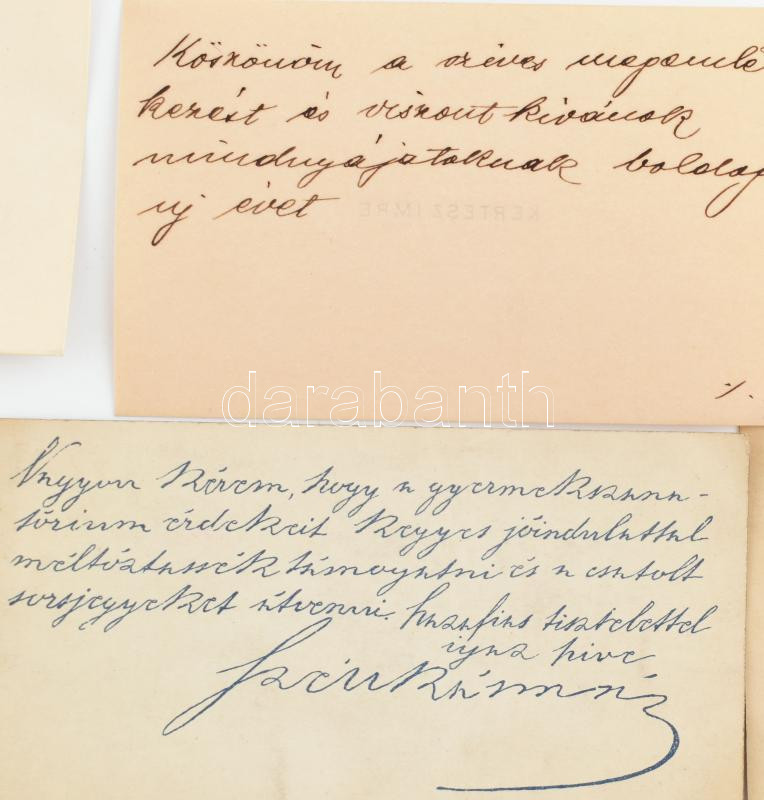 Köszönöm a szíves megemlé
kezést és viszont kivánok
mindnyájatoknak boldog
uj évet
KERTÉSZ IMRE
./.
darabanth
Nagyon kérem, hogy a gyermekszana-
tórium érdekeit kegyes jóindulattal
méltóztassék támogatni és a csatolt
sorsjegyeket átvenni. hazafias tisztelettel
igaz hive
Széll Kálmán